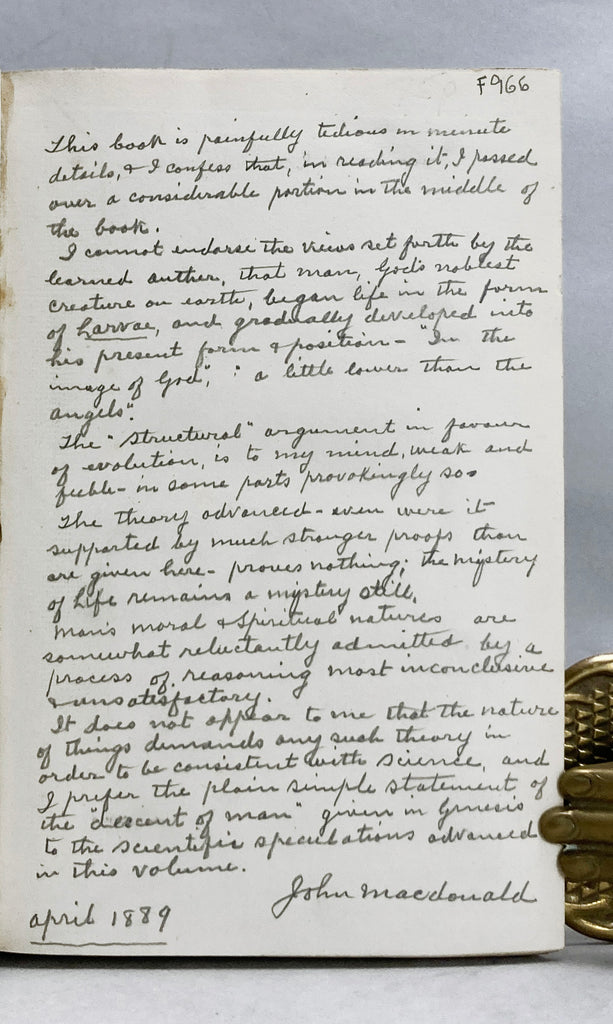 F966
This book is painfully tedious in minute
details, & I confess that, in reading it, I passed
over a considerable portion in the middle of
the book.
I cannot endorse the views set forth by the
learned author, that man, God's noblest
creature on earth, began life in the form
of Larvae, and gradually developed into
his present form & position - "In the
image of God", "a little lower than the
angels".
The "structural" argument in favour
of evolution, is to my mind, weak and
feeble - in some parts provokingly so.
The theory advanced - even were it
supported by much stronger proofs than
are given here - proves nothing; the mystery
of Life remains a mystery still.
Man's moral & Spiritual natures are
somewhat reluctantly admitted by a
process of reasoning most inconclusive
& unsatisfactory.
It does not appear to me that the nature
of things demands any such theory in
order to be consistent with science, and
I prefer the plain simple statement of
the "descent of man" given in Genesis
to the scientific speculations advanced
in this volume.
John Macdonald
April 1889